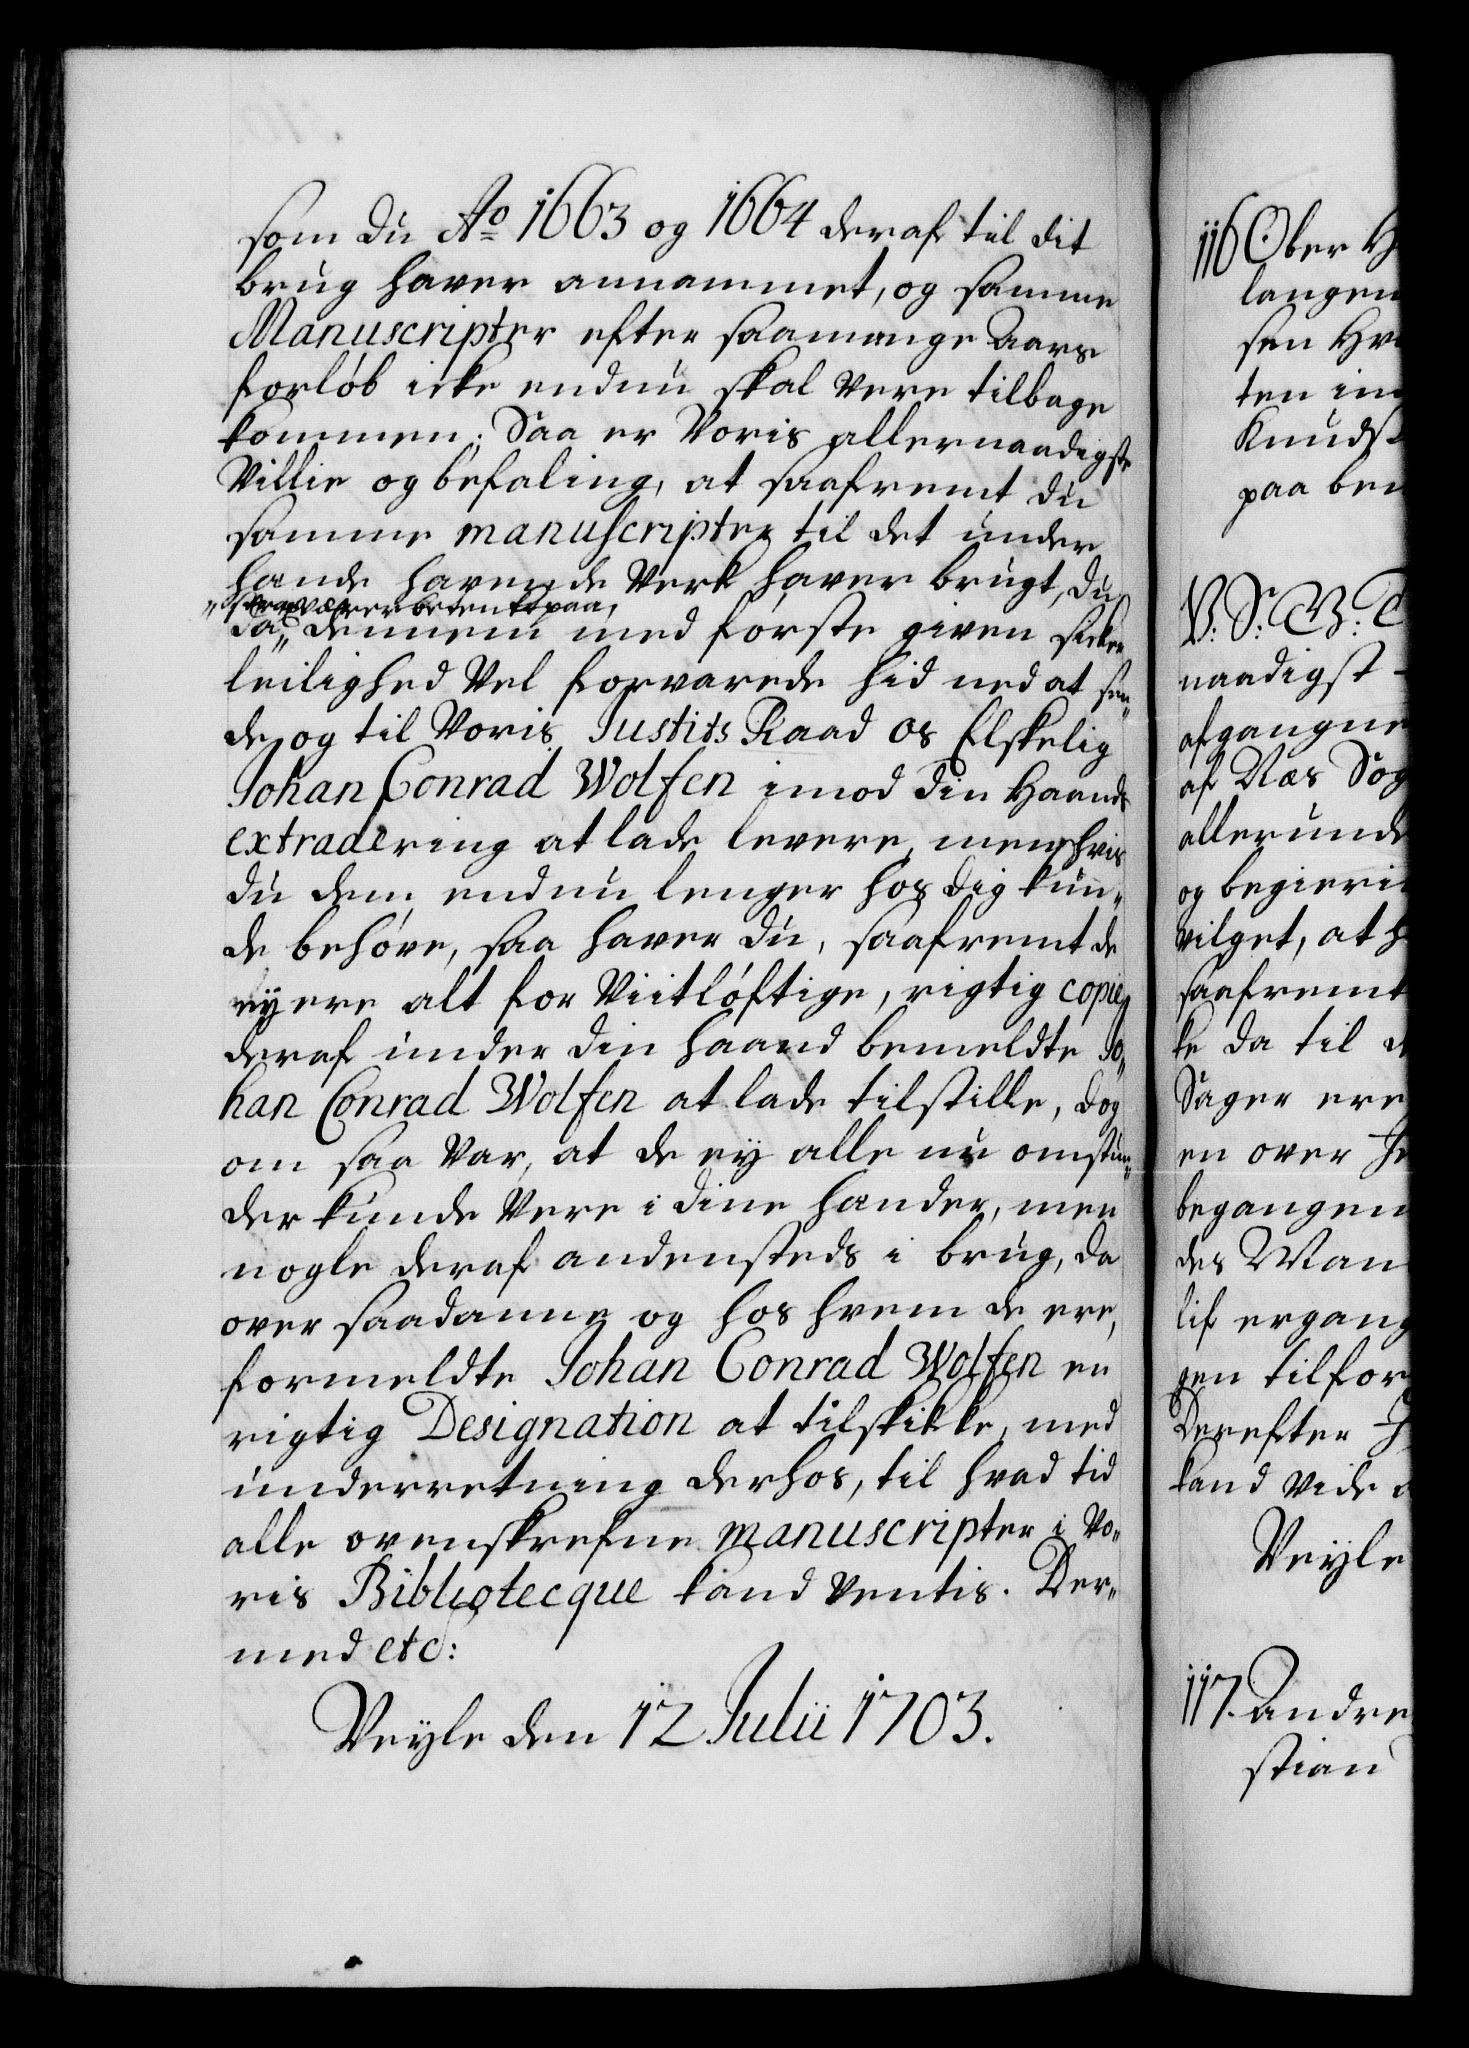 som du Ao 1663 og 1664 deraf til dit
brug hafver annammet, og samme
Manuscripter efter saamange Aars
forløb icke endnu skal være tilbage
kommen; Saa er Voris allernaadigste
Villie og befaling, at saafremt du
samme manuscripter til det under
hande hafvende Verk hafver brugt, du
da „strax værer betenkt paa, dennem med første gifven sicker
leilighed Vel forvarede hid ned at sen„
de, og til Voris Justits Raad os Elskelig
Johan Conrad Wolfen imod din Haands
extradering at lade levere, men hvis
du dem endnu lenger hos dig kun„
de behøve, saa hafver du, saafremt de
ey ere alt for Viitløftige, rigtig copie
deraf under din haand bemeldte Jo„
han Conrad Wolfen at lade tilstille, dog
om saa Var, at de ey alle nu omstun„
der kunde Vere i dine hænder, men
nogle deraf andensteds i brug, da
over saadanne og hos hvem de ere,
formeldte Johan Conrad Wolfen en
rigtig Designation at tilskikke, med
underretning derhos, til hvad tid
alle ovenskrefne manuscripter i Vo„
ris Bibliotecque kand ventis. Der„
med etc:
Veyle den 12 Julii 1703.
116 Ober H
langen
sen Hv
ten in
Knuds
paa be
V: S: G: V:
naadigst
afgangne
af Næs Sog
allerunde
og begieri
vilget, at h
saafremt
ke da til d
Sager ere
en over J
begangen
des Man
lif ergang
gen tilfor
Derefter J
kand vide
Veyle
117. Andre
stian